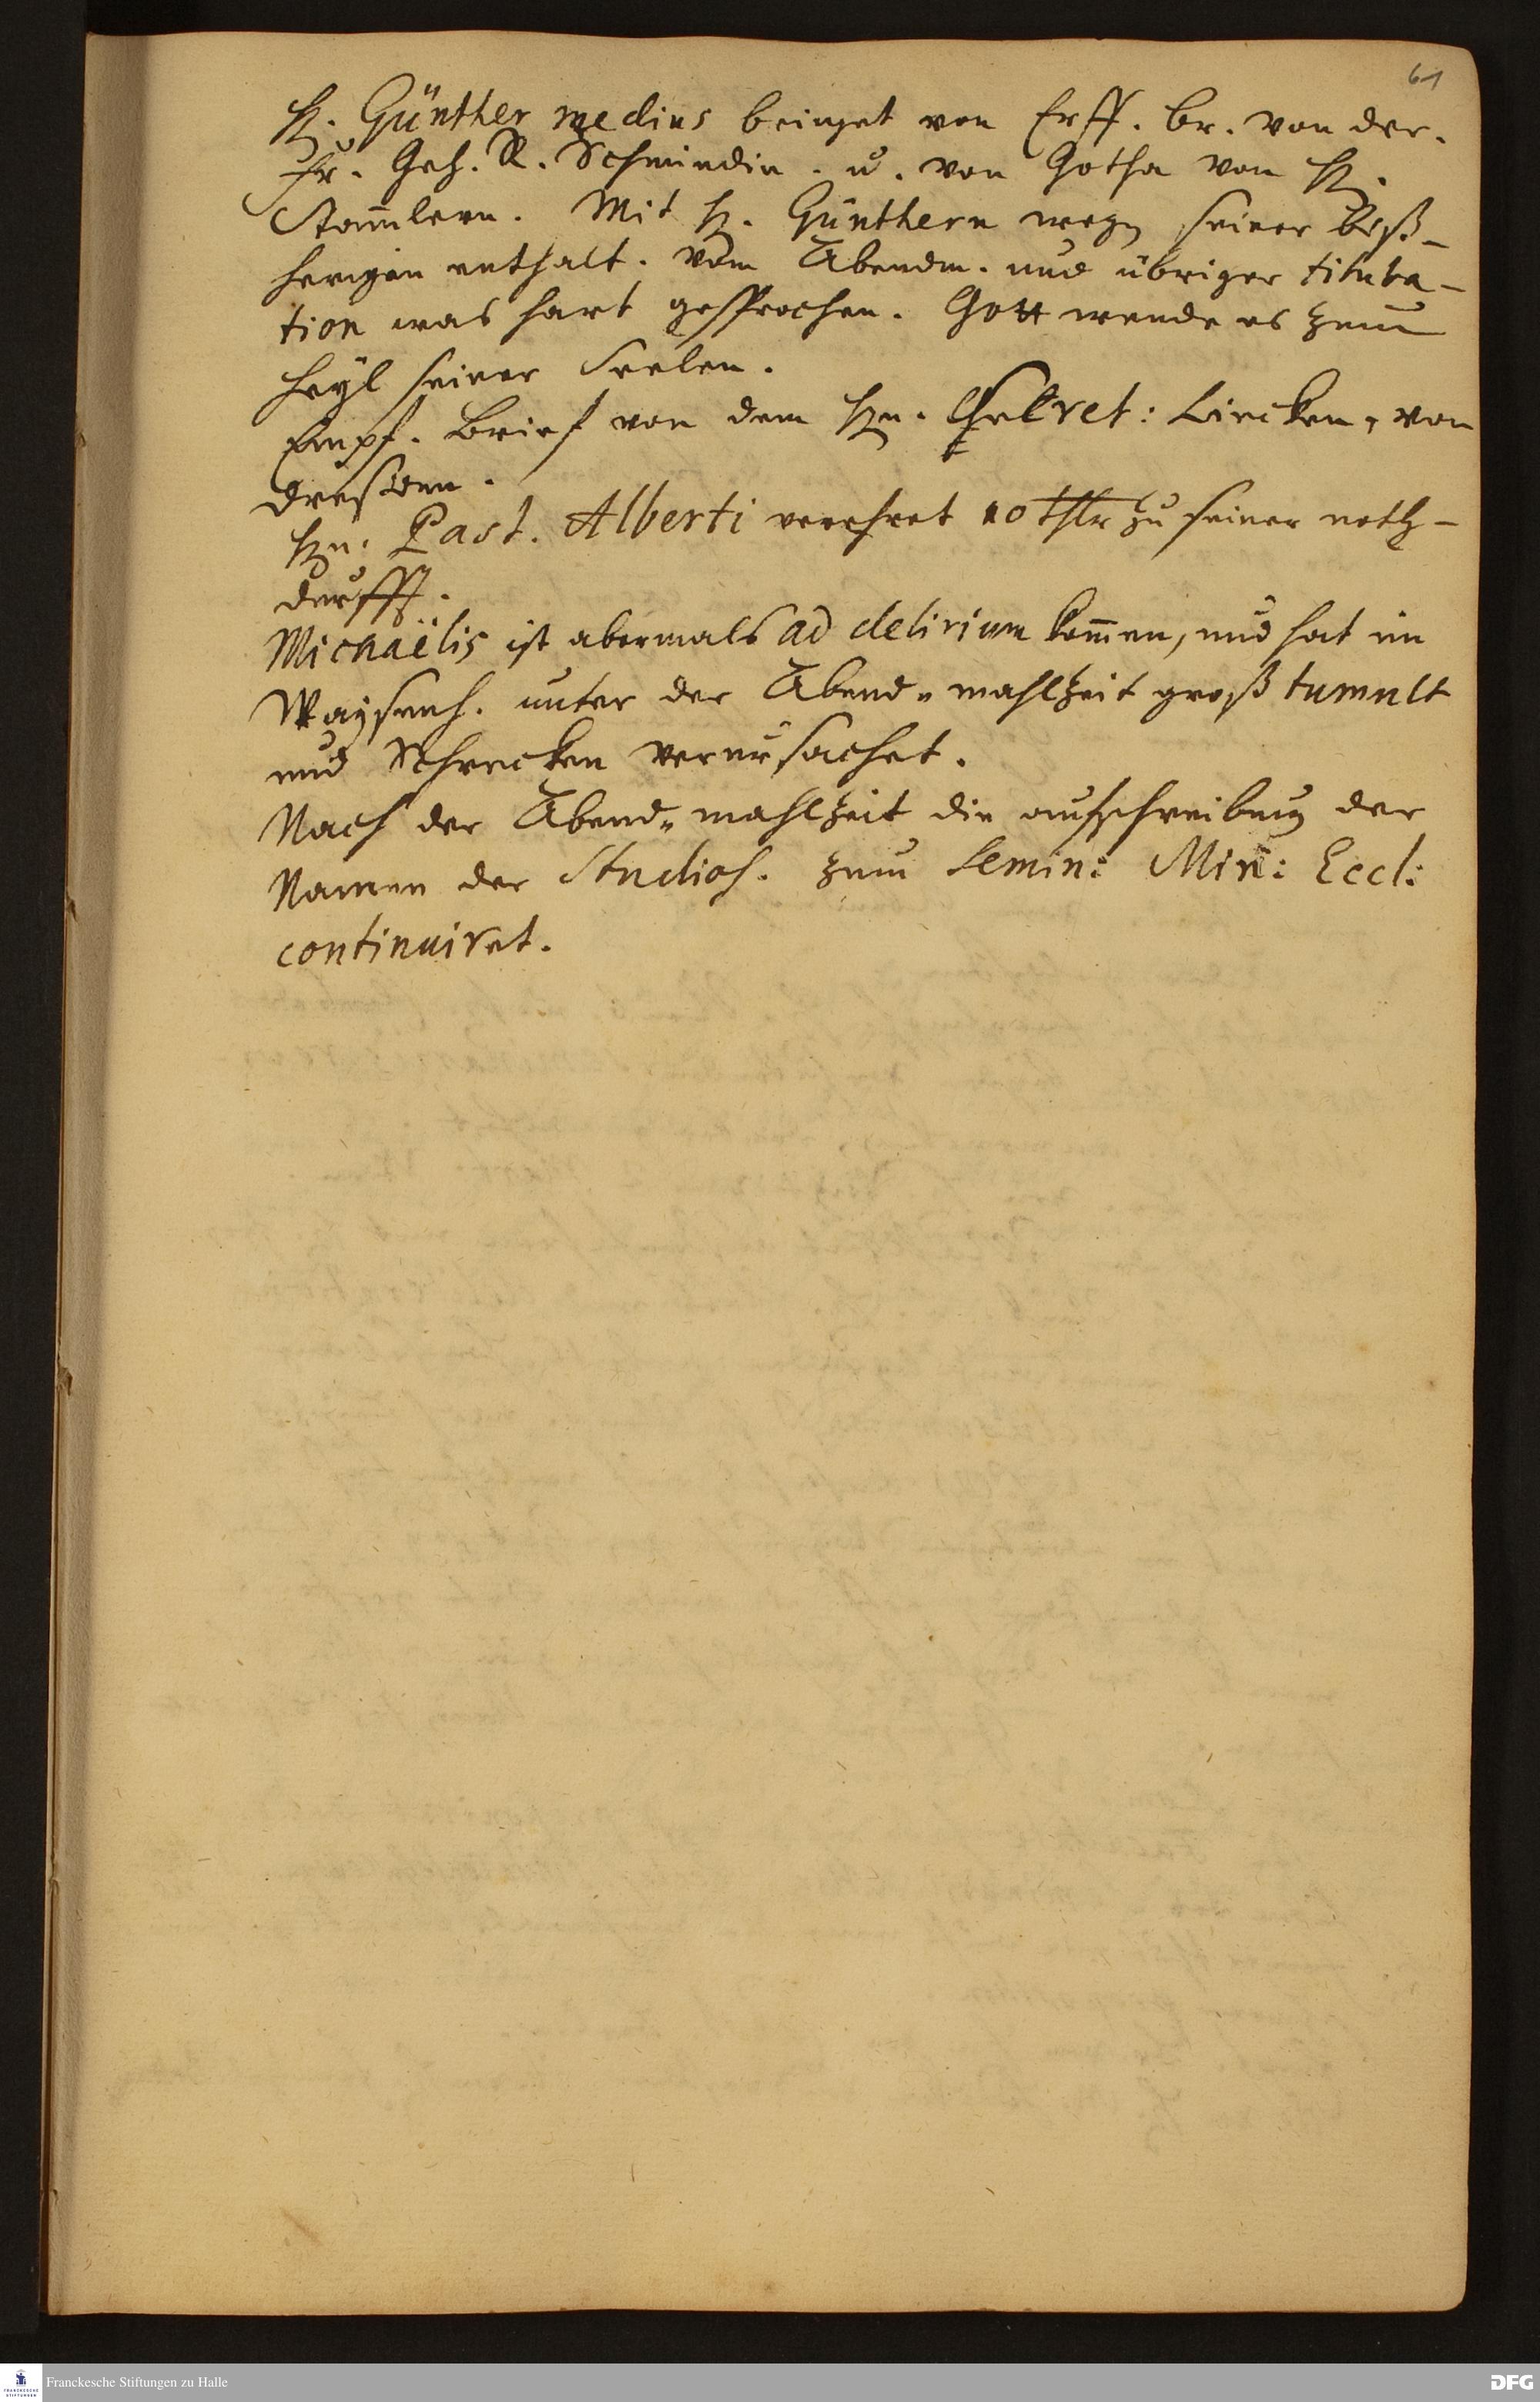 61
H. Günther medicus bringet von Erff. br. von der.
Fr. Geh. R. Schmiedin. u. von Gotha von H.
Stam̄lern. Mit H. Günthern wegen seiner biß-
herigen enthalt. vom Abendm. und übriger tituba-
tion was hart gesprochen. Gott wende es zum
Heyl seiner Seelen.
Empf. Brief von dem Hn. Secret: Lincken, von
Dreßden.
Hn. Past. Alberti verehret 10 thlr zu seiner noth-
durfft.
Michaëlis ist abermals ad delirium kom̄en, und hat im
Waysenh. unter der Abend-mahlzeit groß tumult
und Schrecken verursachet.
Nach der Abend-mahlzeit die aufschreibung der
Namen der Studios. zum Semin: Min: Eccl:
continuiret.
Franckesche Stiftungen zu Halle
DFG